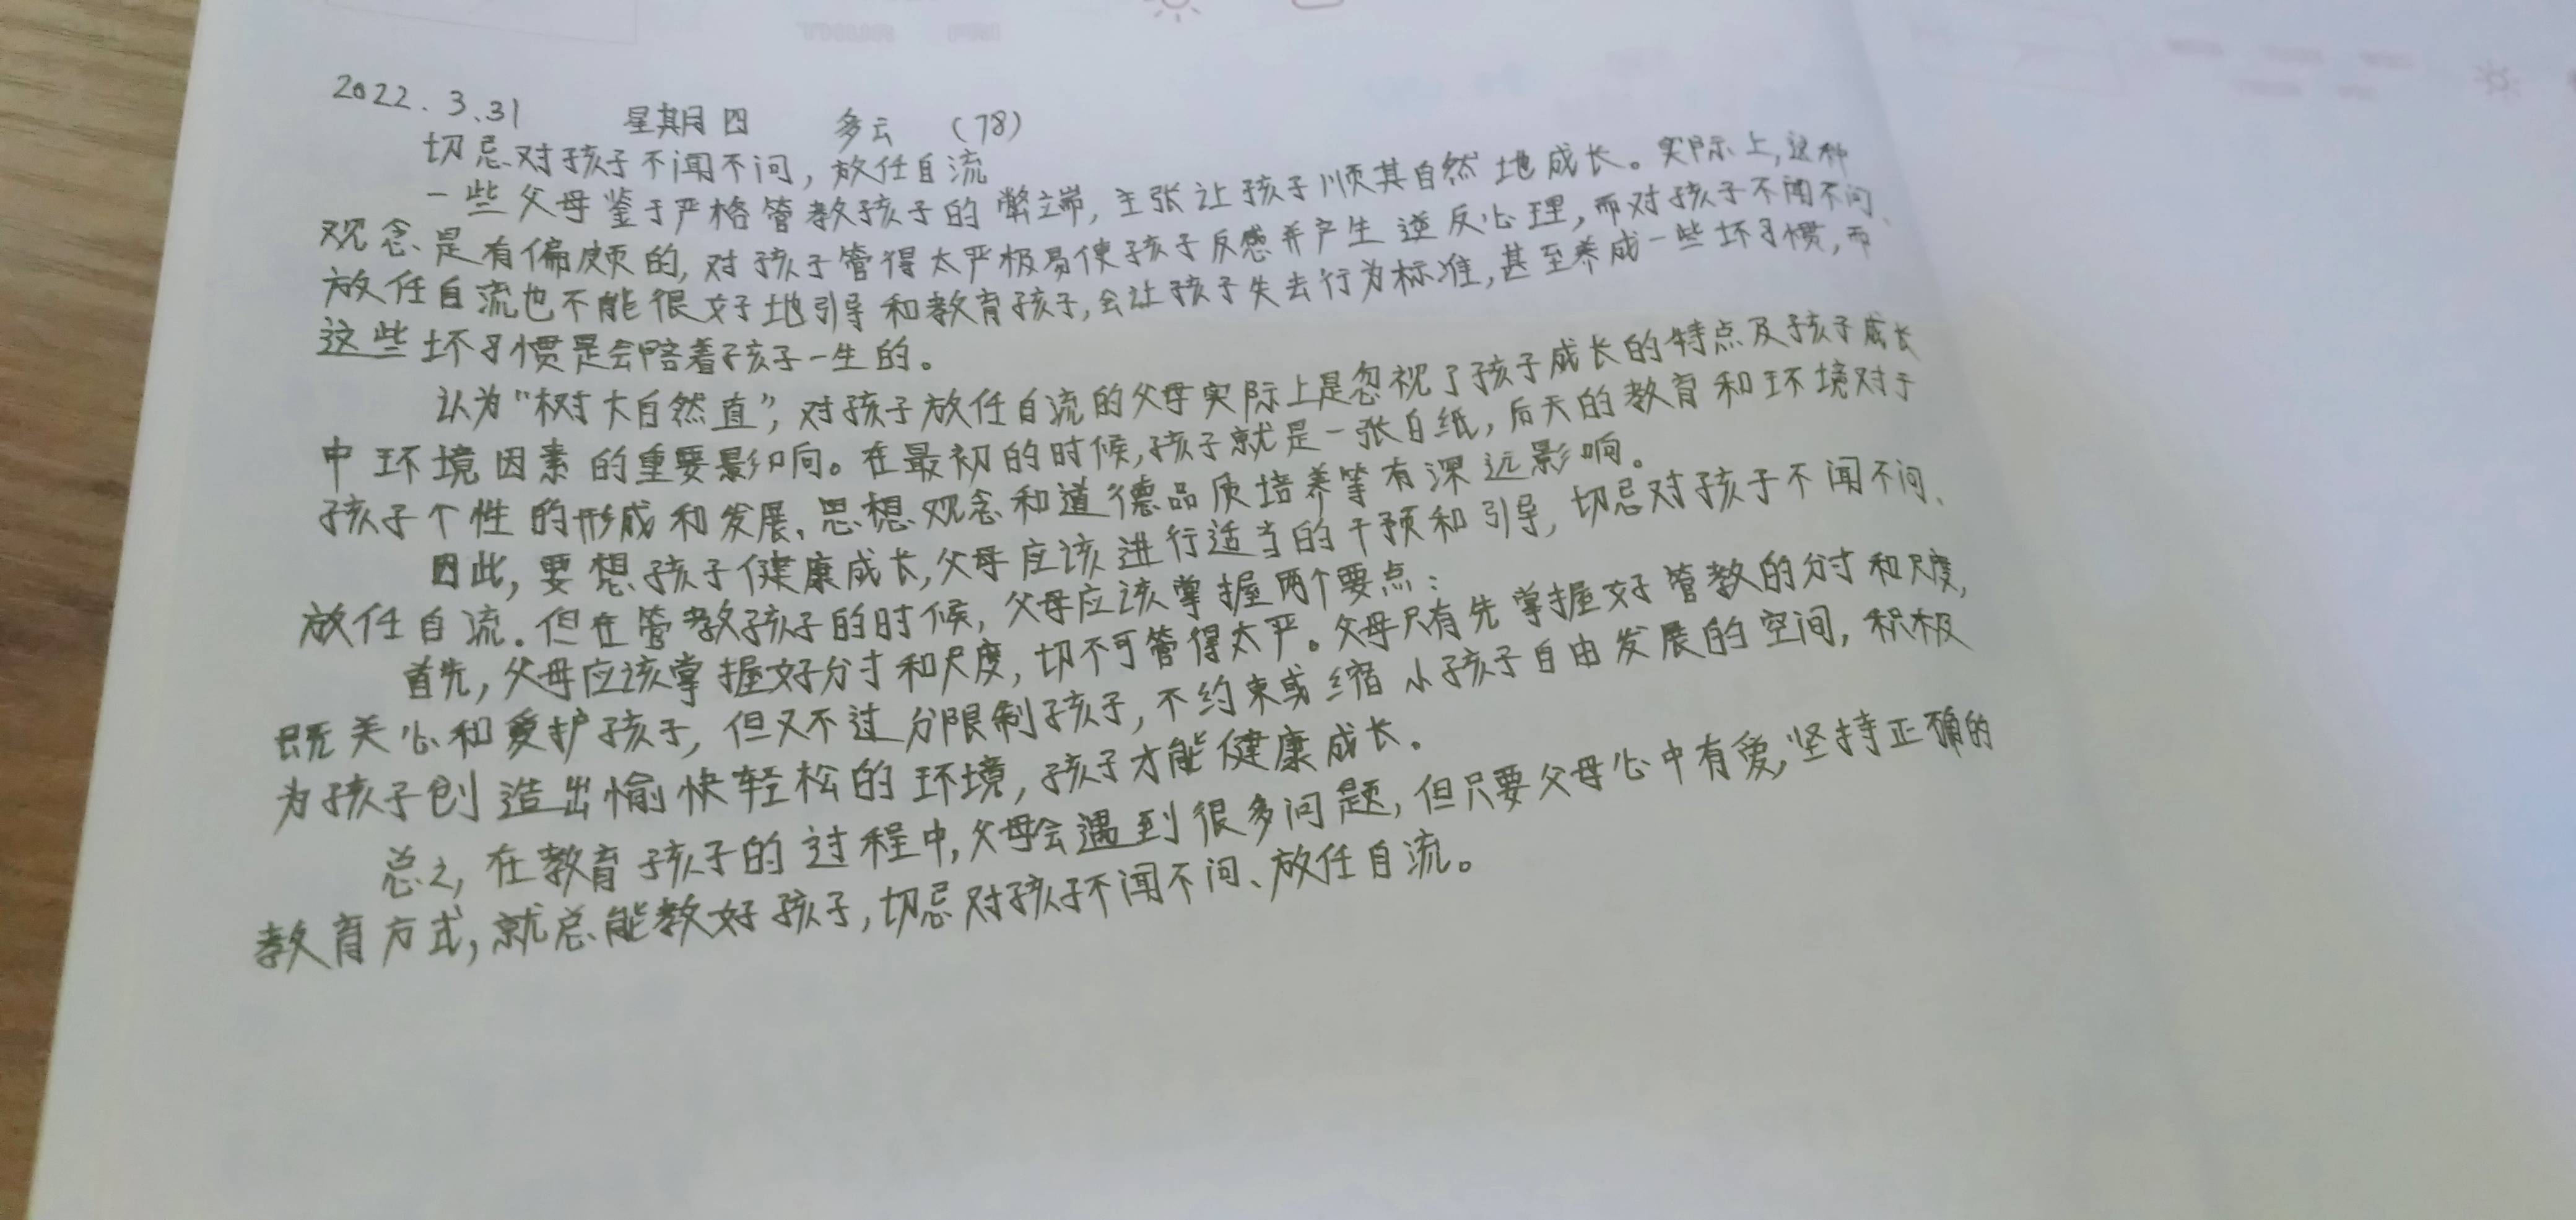 2022.3.31 星期四 多云 (78)
切忌对孩子不闻不问，放任自流
一些父母鉴于严格管教孩子的弊端，主张让孩子顺其自然地成长。实际上，这种
观念是有偏颇的，对孩子管得太严极易使孩子反感并产生逆反心理，而对孩子不闻不问、
放任自流也不能很好地引导和教育孩子，会让孩子失去行为标准，甚至养成一些坏习惯，而
这些坏习惯是会陪着孩子一生的。
认为“树大自然直”，对孩子放任自流的父母实际上是忽视了孩子成长的特点及孩子成长
中环境因素的重要影响。在最初的时候，孩子就是一张白纸，后天的教育和环境对于
孩子个性的形成和发展、思想观念和道德品质培养等有深远影响。
因此，要想孩子健康成长，父母应该进行适当的干预和引导，切忌对孩子不闻不问、
放任自流。但在管教孩子的时候，父母应该掌握两个要点：
首先，父母应该掌握好分寸和尺度，切不可管得太严。父母只有先掌握好管教的分寸和尺度，
既关心和爱护孩子，但又不过分限制孩子，不约束或缩小孩子自由发展的空间，积极
为孩子创造出愉快轻松的环境，孩子才能健康成长。
总之，在教育孩子的过程中，父母会遇到很多问题，但只要父母心中有爱，坚持正确的
教育方式，就总能教好孩子，切忌对孩子不闻不问、放任自流。